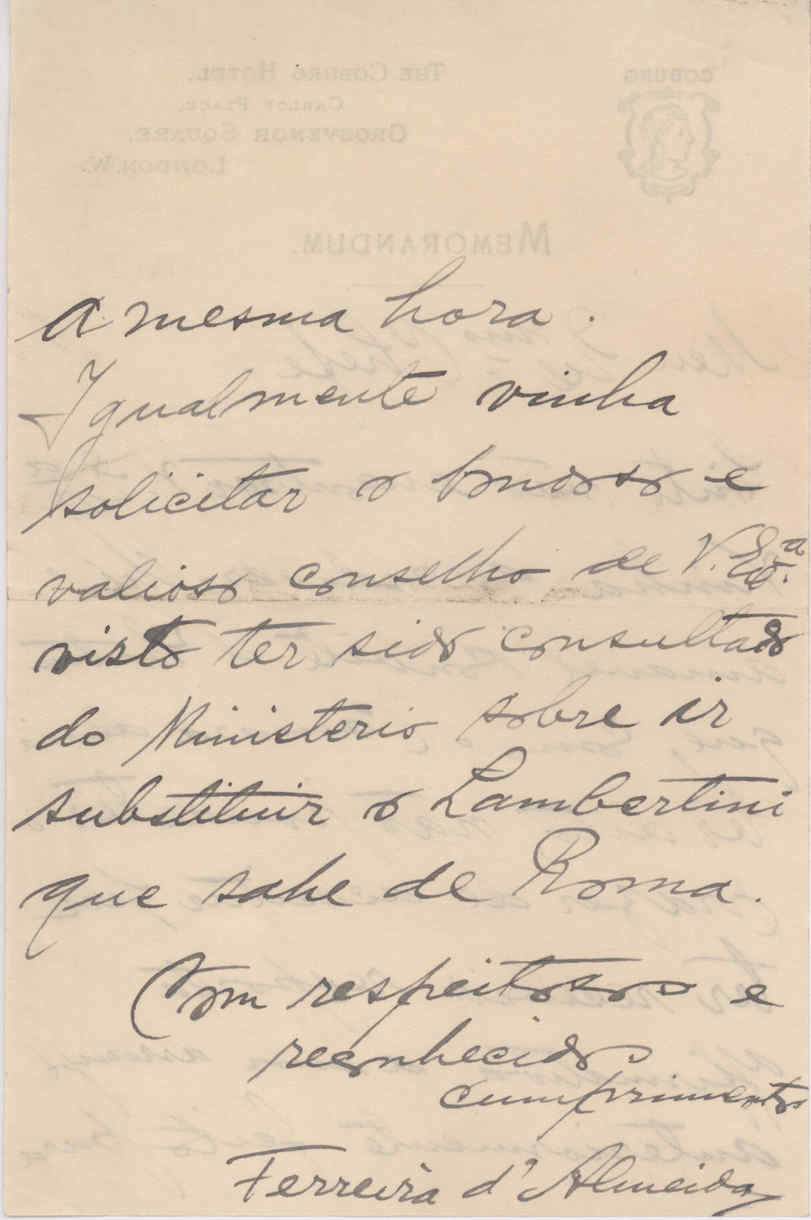 a mesma hora.
Igualmente vinha
solicitar o bondoso e
valioso conselho de V. Exª.
visto ter sido consultado
do Ministerio sobre ir
substituir o Lambertini
que sahe de Roma.
Com respeitosos e
reconhecidos
cumprimentos
Ferreira d'Almeida
THE COBURG HOTEL.
CARLOS PLACE.
GROSVENOR SQUARE.
LONDON. W.
COBURG
MEMORANDUM.